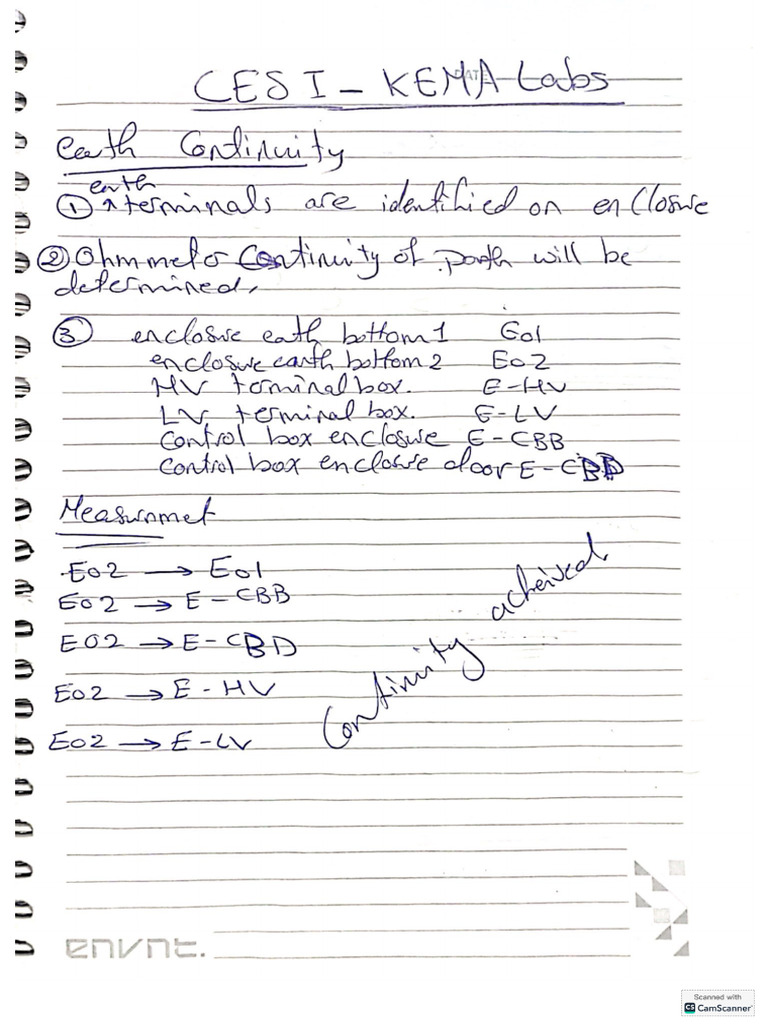 CESI - KEMA Labs
earth Continuity
earth
① ^ terminals are identified on enclosure
② Ohmmeter Continuity of path will be
determined.
③ enclosure eath bottom 1 E01
enclosure earth bottom 2 E02
HV terminal box. E-HV
LV terminal box. E-LV
Control box enclosure E-CBB
control box enclosure door E-CBD
Measurnmet
E02 → E01
E02 → E-CBB
E02 → E-CBD
E02 → E-HV
E02 → E-LV
Continuity acheived
envnt.
Scanned with
CS CamScanner